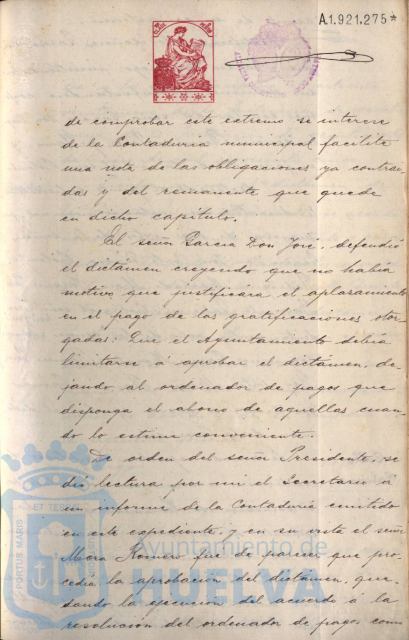 A1.921.275*
de comprobar este extremo se interese
de la Contaduria municipal facilite
una nota de las obligaciones ya contrai-
das y del remanente que quede
en dicho capítulo.
El señor Garcia Don José, defendió
el dictámen creyendo que no habia
motivo que justificára el aplazamiento
en el pago de las gratificaciones otor-
gadas: Que el Ayuntamiento debia
limitarse á aprobar el dictámen, de-
jando al ordenador de pagos que
disponga el abono de aquellas cuan-
do lo estime conveniente.
De orden del señor Presidente, se
dió lectura por mi el Secretario á
un informe de la Contaduria emitido
en este expediente, y en su vista el señor
Mora Romero fue de parecer que pro-
cedia la aprobacion del dictámen, que-
dando la ejecucion del acuerdo á la
resolucion del ordenador de pagos como
PORTUS MARIS
ET TE
Ayuntamiento de
HUELVA